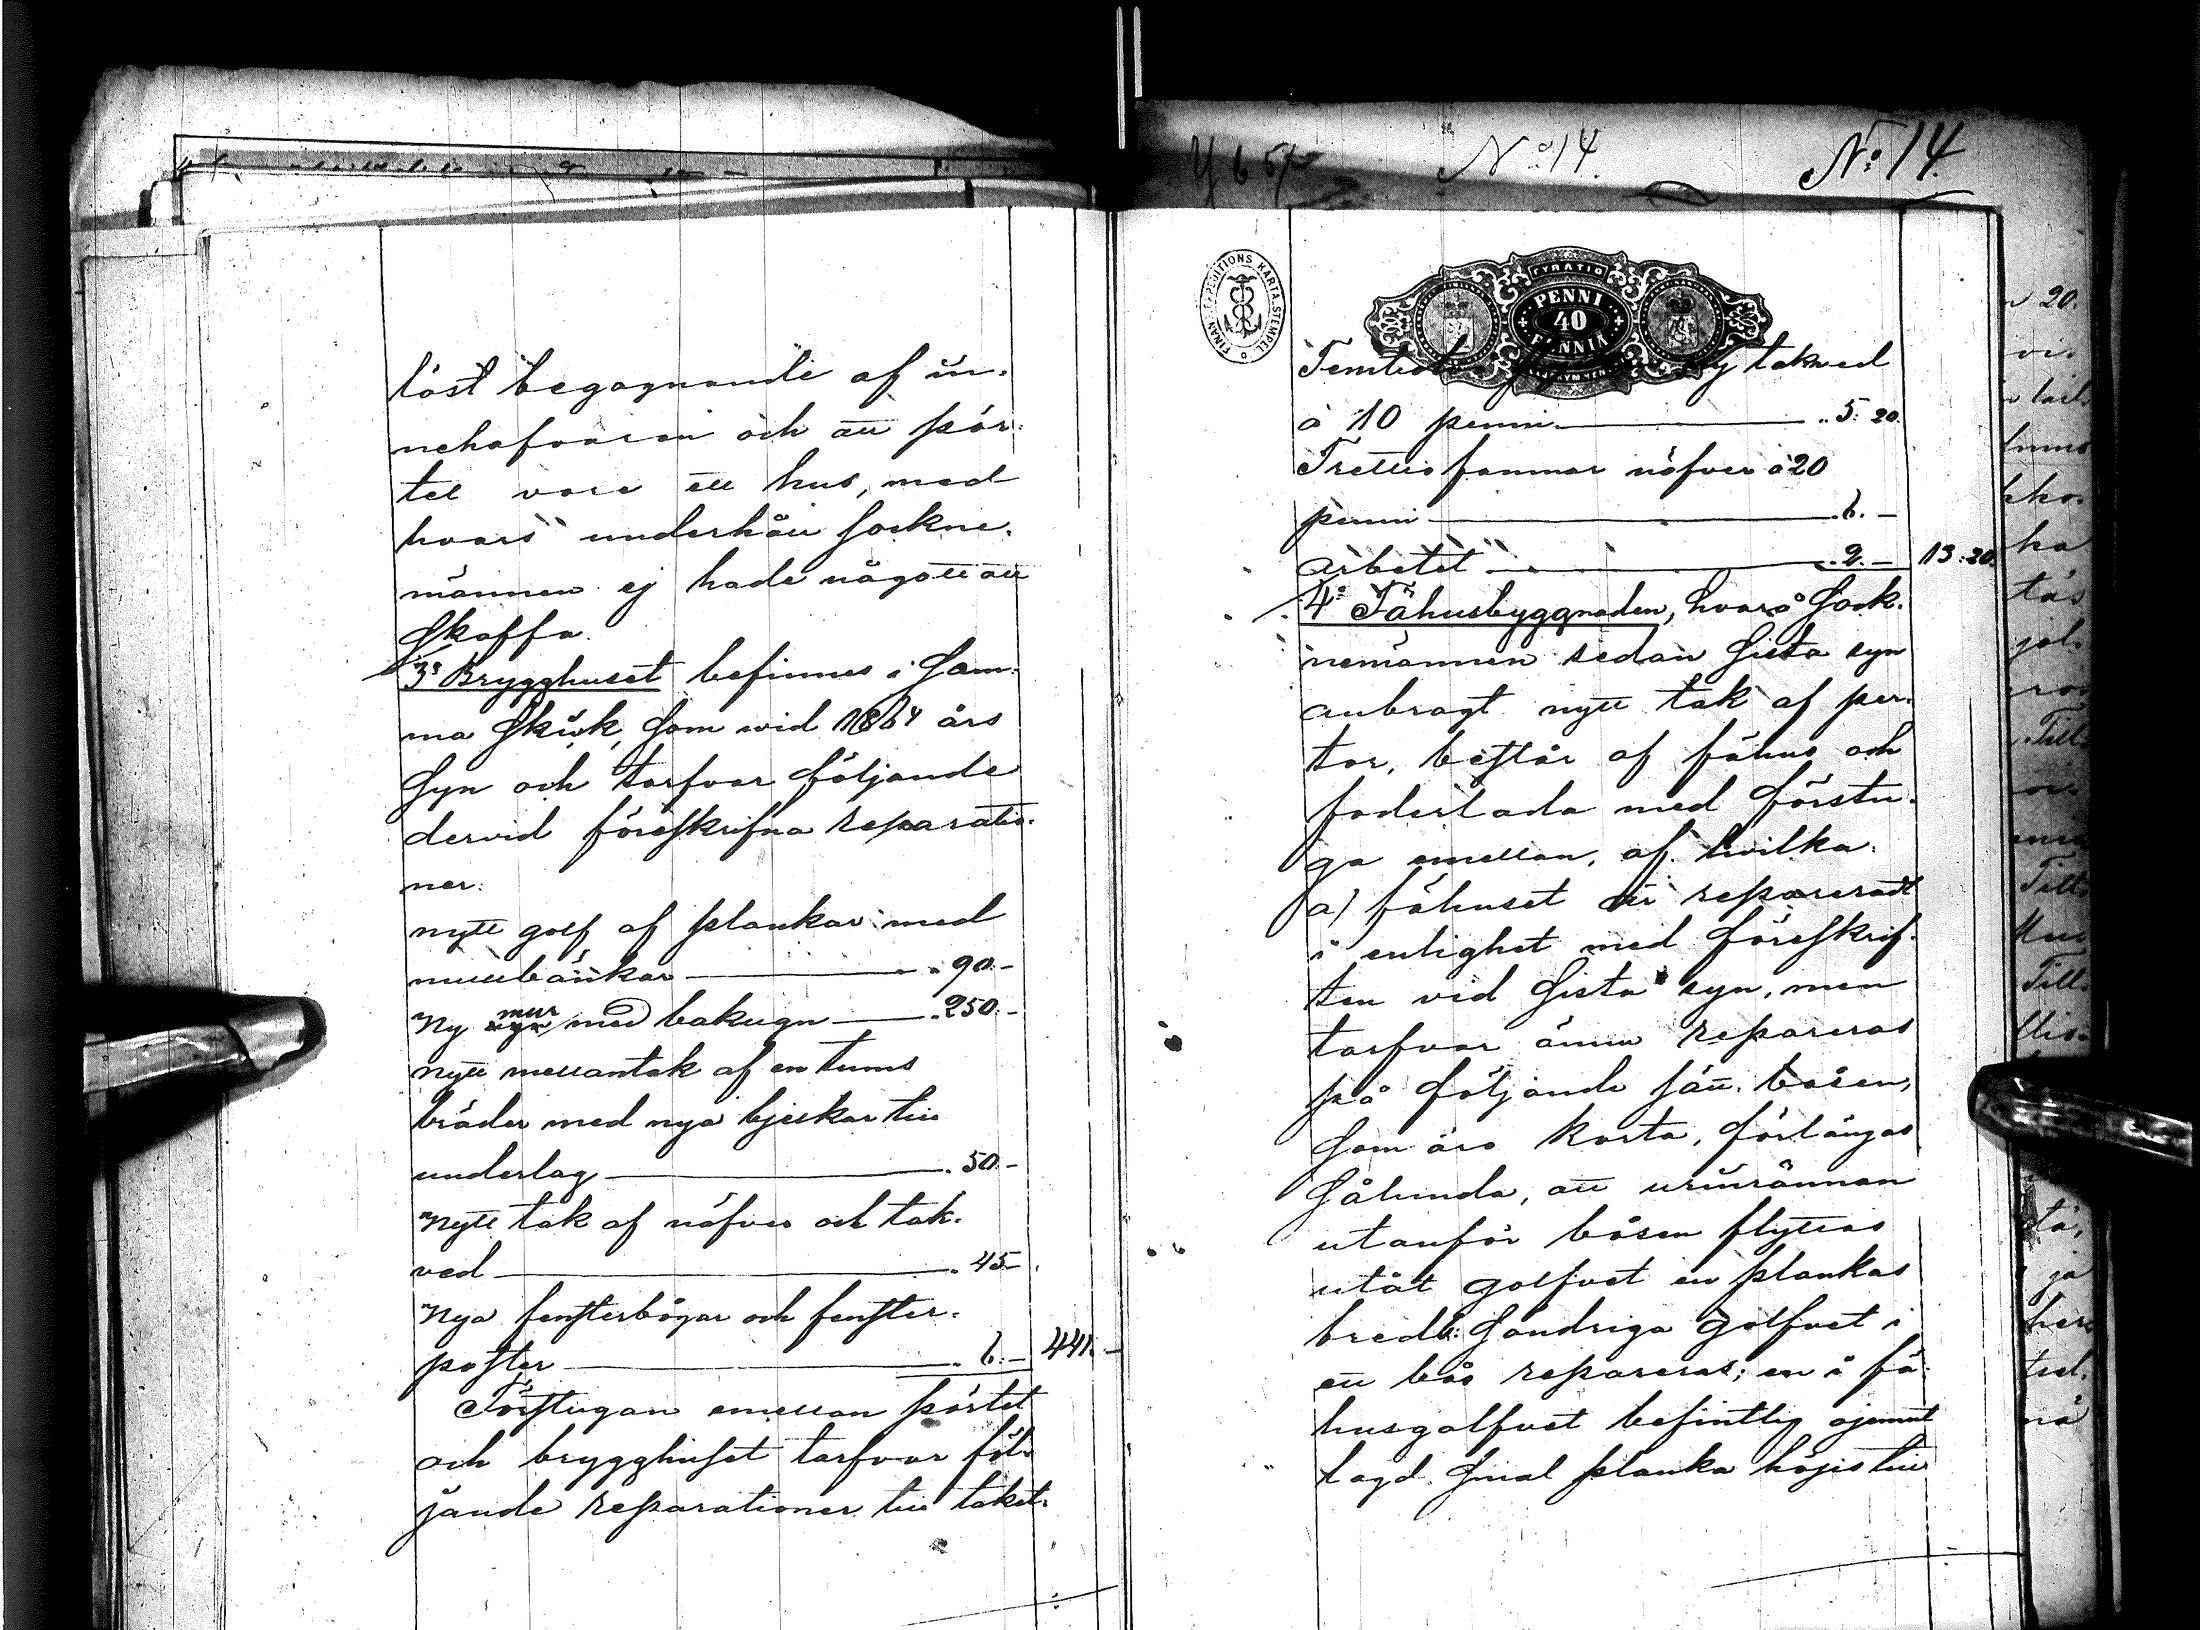 löst begagnande af in-
nehafvaren och att pör-
tet vore ett hus, med
hvars underhåll sockne-
männen ej hade något att
skaffa.
3o Brygghuset befinnes i sam-
ma skick, som wid 1864 års
syn och tarfvar följande
dervid föreskrifna reparatio-
ner:
nytt golf af plankor med
mullbänkar " 90.-
Ny mur med bakugn " 250.-
nytt mellantak af en tums
bräder med nya bjelkar till
underlag " 50.-
Nytt tak af näfver och tak-
ved " 45.-
Nya fensterbågar och fenster-
poster " 6.- 441.-
Förstugan emellan pörtet
och brygghuset tarfvar föl-
jande reparationer till taket:
No 14.
No 14.
FINSK EXPEDITIONS KARTA STEMPEL
PENNI
40
PENNIÄ
takved
à 10 penni " 5:20.
Trettio famnar näfver à 20
penni " 6.-
arbetet " 2.- 13:20.
4o Fähusbyggnaden, hvars sock-
nemännen sedan sista syn
anbragt nytt tak af per-
tor, består af fähus och
foderlada med förstu-
ga emellan, af hvilka
a) fähuset är repareradt
i enlighet med föreskrif-
ten vid sista syn, men
tarfvar ännu repareras
på följande sätt: båsen,
som äro korta, förlängas
sålunda, att urinrännan
utanför båsen flyttas
utåt golfvet en plankas
bredd: sandriga golfvet i
ett bås repareras; en i fä-
husgolfvet befintlig ojemnt
lagd smal planka höjes till